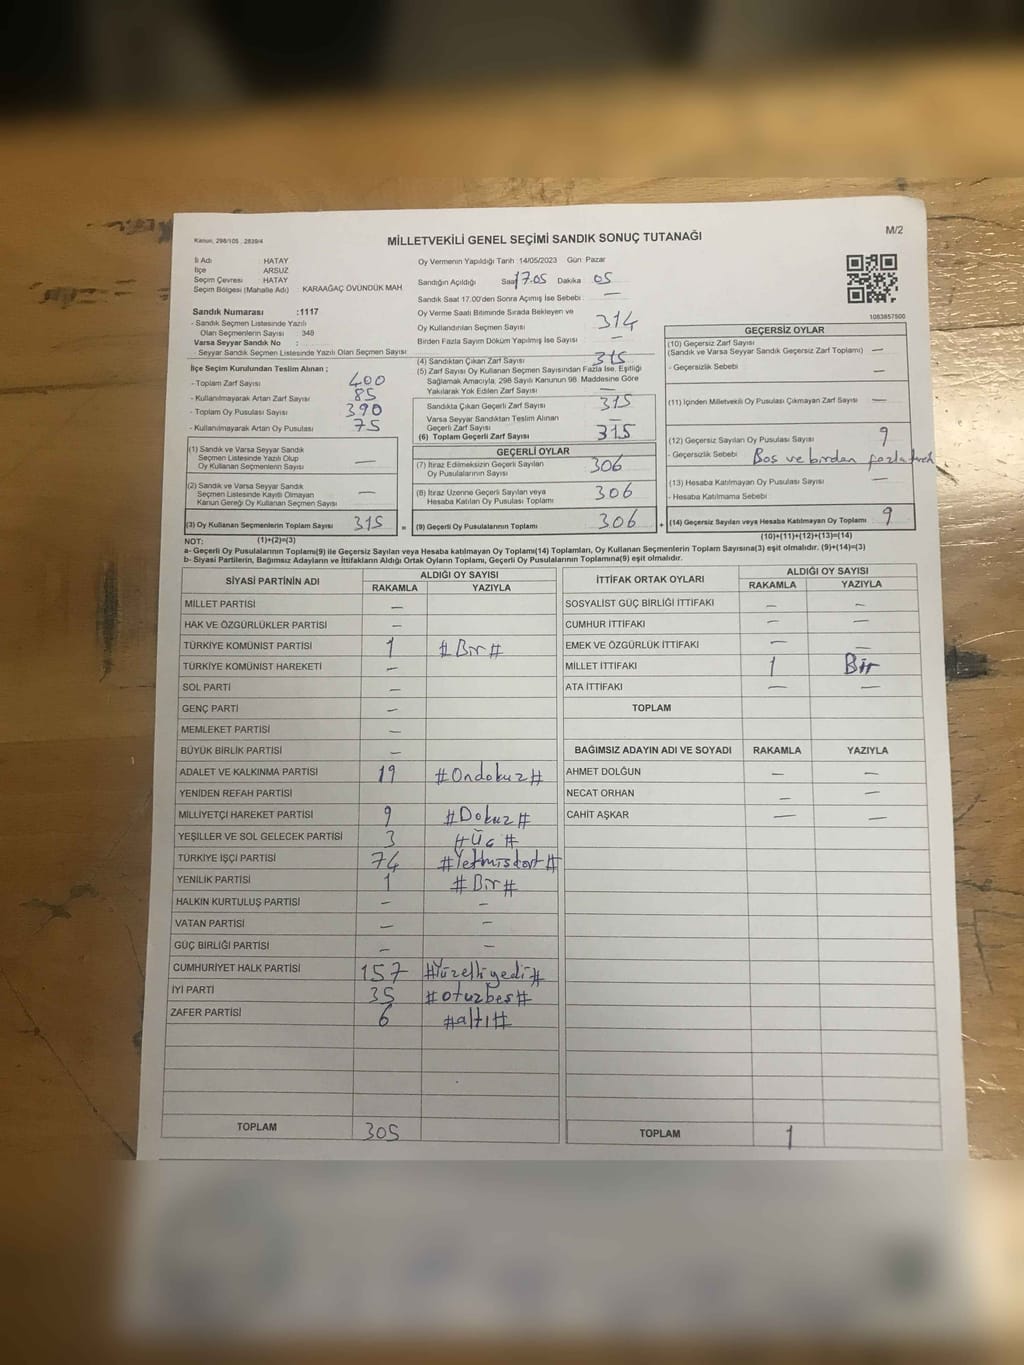 Kanun, 298/105 , 2839/4
MİLLETVEKİLİ GENEL SEÇİMİ SANDIK SONUÇ TUTANAĞI
M/2
İl Adı : HATAY
İlçe ARSUZ
Seçim Çevresi : HATAY
Seçim Bölgesi (Mahalle Adı) : KARAAĞAÇ ÖVÜNDÜK MAH
Oy Vermenin Yapıldığı Tarih :14/05/2023 Gün: Pazar
Sandığın Açıldığı Saat 17.05 Dakika 05
Sandık Saat 17.00'den Sonra Açılmış İse Sebebi : —
Oy Verme Saati Bitiminde Sırada Bekleyen ve
Oy Kullandırılan Seçmen Sayısı 314
Birden Fazla Sayım Döküm Yapılmış İse Sayısı —
Sandık Numarası :1117
- Sandık Seçmen Listesinde Yazılı
Olan Seçmenlerin Sayısı 348
Varsa Seyyar Sandık No :
Seyyar Sandık Seçmen Listesinde Yazılı Olan Seçmen Sayısı:
İlçe Seçim Kurulundan Teslim Alınan ;
- Toplam Zarf Sayısı 400
- Kullanılmayarak Artan Zarf Sayısı 85
- Toplam Oy Pusulası Sayısı 390
- Kullanılmayarak Artan Oy Pusulası 75
(1) Sandık ve Varsa Seyyar Sandık
Seçmen Listesinde Yazılı Olup
Oy Kullanan Seçmenlerin Sayısı —
(2) Sandık ve Varsa Seyyar Sandık
Seçmen Listesinde Kayıtlı Olmayan
Kanun Gereği Oy Kullanan Seçmen Sayısı —
(3) Oy Kullanan Seçmenlerin Toplam Sayısı 315 =
(1)+(2)=(3)
(4) Sandıktan Çıkan Zarf Sayısı 315
(5) Zarf Sayısı Oy Kullanan Seçmen Sayısından Fazla İse, Eşitliği
Sağlamak Amacıyla, 298 Sayılı Kanunun 98. Maddesine Göre
Yakılarak Yok Edilen Zarf Sayısı —
Sandıkta Çıkan Geçerli Zarf Sayısı 315
Varsa Seyyar Sandıktan Teslim Alınan
Geçerli Zarf Sayısı
(6) Toplam Geçerli Zarf Sayısı 315
GEÇERLİ OYLAR
(7) İtiraz Edilmeksizin Geçerli Sayılan
Oy Pusulalarının Sayısı 306
(8) İtiraz Üzerine Geçerli Sayılan veya
Hesaba Katılan Oy Pusulası Toplamı 306
(9) Geçerli Oy Pusulalarının Toplamı 306 +
1083857500
GEÇERSİZ OYLAR
(10) Geçersiz Zarf Sayısı
(Sandık ve Varsa Seyyar Sandık Geçersiz Zarf Toplamı) —
- Geçersizlik Sebebi —
(11) İçinden Milletvekili Oy Pusulası Çıkmayan Zarf Sayısı —
(12) Geçersiz Sayılan Oy Pusulası Sayısı 9
- Geçersizlik Sebebi Boş ve birden fazla
(13) Hesaba Katılmayan Oy Pusulası Sayısı —
- Hesaba Katılmama Sebebi
(14) Geçersiz Sayılan veya Hesaba Katılmayan Oy Toplamı 9
(10)+(11)+(12)+(13)=(14)
NOT:
a- Geçerli Oy Pusulalarının Toplamı(9) ile Geçersiz Sayılan veya Hesaba katılmayan Oy Toplamı(14) Toplamları, Oy Kullanan Seçmenlerin Toplam Sayısına(3) eşit olmalıdır. (9)+(14)=(3)
b- Siyasi Partilerin, Bağımsız Adayların ve İttifakların Aldığı Ortak Oyların Toplamı, Geçerli Oy Pusulalarının Toplamına(9) eşit olmalıdır.
SİYASİ PARTİNİN ADI ALDIĞI OY SAYISI
RAKAMLA YAZIYLA
MİLLET PARTİSİ —
HAK VE ÖZGÜRLÜKLER PARTİSİ —
TÜRKİYE KOMÜNİST PARTİSİ 1 #Bir#
TÜRKİYE KOMÜNİST HAREKETİ —
SOL PARTİ —
GENÇ PARTİ —
MEMLEKET PARTİSİ —
BÜYÜK BİRLİK PARTİSİ —
ADALET VE KALKINMA PARTİSİ 19 #Ondokuz#
YENİDEN REFAH PARTİSİ
MİLLİYETÇİ HAREKET PARTİSİ 9 #Dokuz#
YEŞİLLER VE SOL GELECEK PARTİSİ 3 #Üç#
TÜRKİYE İŞÇİ PARTİSİ 74 #Yetmişdört#
YENİLİK PARTİSİ 1 #Bir#
HALKIN KURTULUŞ PARTİSİ — —
VATAN PARTİSİ — —
GÜÇ BİRLİĞİ PARTİSİ — —
CUMHURİYET HALK PARTİSİ 157 #Yüzelliyedi#
İYİ PARTİ 35 #otuzbeş#
ZAFER PARTİSİ 6 #altı#
TOPLAM 305
İTTİFAK ORTAK OYLARI ALDIĞI OY SAYISI
RAKAMLA YAZIYLA
SOSYALİST GÜÇ BİRLİĞİ İTTİFAKI — —
CUMHUR İTTİFAKI — —
EMEK VE ÖZGÜRLÜK İTTİFAKI — —
MİLLET İTTİFAKI 1 Bir
ATA İTTİFAKI — —
TOPLAM
BAĞIMSIZ ADAYIN ADI VE SOYADI RAKAMLA YAZIYLA
AHMET DOLĞUN — —
NECAT ORHAN — —
CAHİT AŞKAR — —
TOPLAM 1